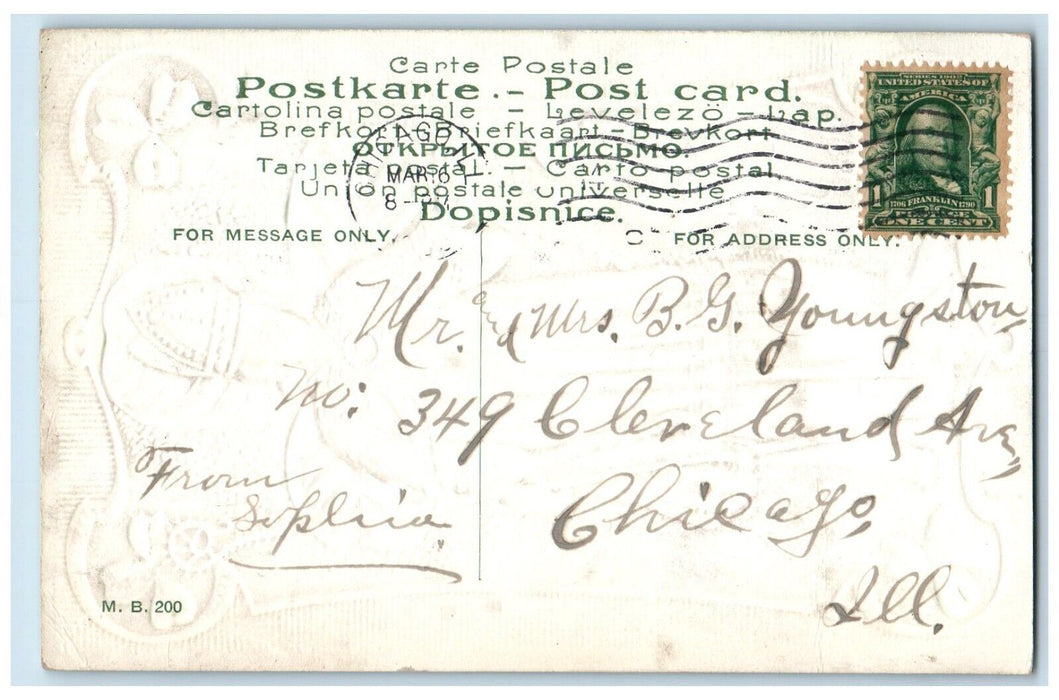 Carte Postale
Postkarte. – Post card.
Cartolina postale – Levelezö – Lap.
Brefkort – Briefkaart – Brevkort
ОТКРЫТОЕ ПИСЬМО.
Tarjeta postal. – Carto postal
Union postale universelle
Dopisnice.
CHICAGO, ILL.
MAR 16
8-PM
SERIES 1902
UNITED STATES OF
AMERICA
1 1
1706 FRANKLIN 1790
POSTAGE
ONE CENT
FOR MESSAGE ONLY.
FOR ADDRESS ONLY.
Mr. and Mrs. B. G. Youngston,
No: 349 Cleveland Ave,
Chicago,
Ill.
From
Sophia
M. B. 200